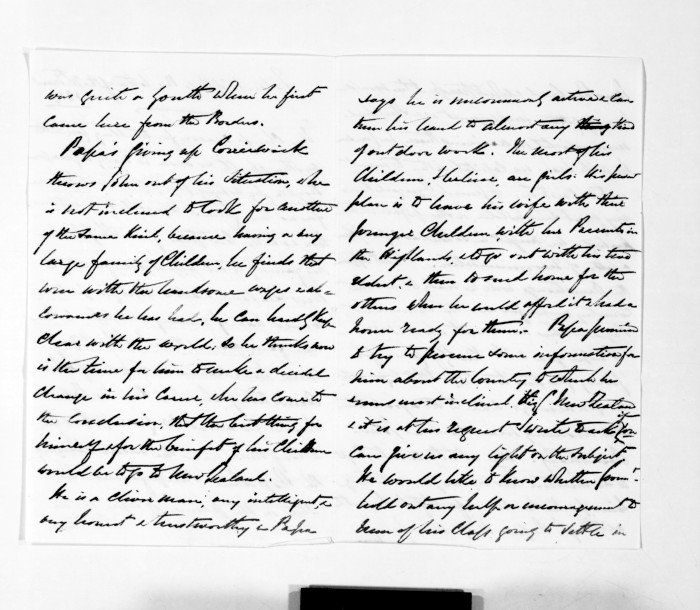 was quite a youth when he first
came here from the Borders.
Papa's giving up
throws John out of his Situation, & he
is not inclined to look for another
of the same kind, because having a very
large family of Children, he finds that
even with the handsome wages & ad=
he has had, he can hardly keep
clear with the world. So he thinks now
is the time for him to make a decided
change in his Career, & he has come to
the conclusion, that the best thing for
himself & for the benefit of his Children
would be to go to New Zealand.
He is a clever man, very intelligent, &
very honest & trustworthy & Papa
says he is uncommonly active & can
turn his hand to almost any kind
of out door work. The most of his
Children, I believe, are girls. His present
plan is to leave his wife with three
younger Children, with her Parents in
the Highlands, & to go out with his two
eldest, & then to send home for the
others when he could afford it & had a
home ready for them. Papa promised
to try to procure some information for
him about the Country to which he
seems most inclined New Zealand
& it is at his request I write to ask if you
can give us any light on the subject.
He would like to know whether Govmt.
hold out any help or encouragement to
men of his Class going to settle in